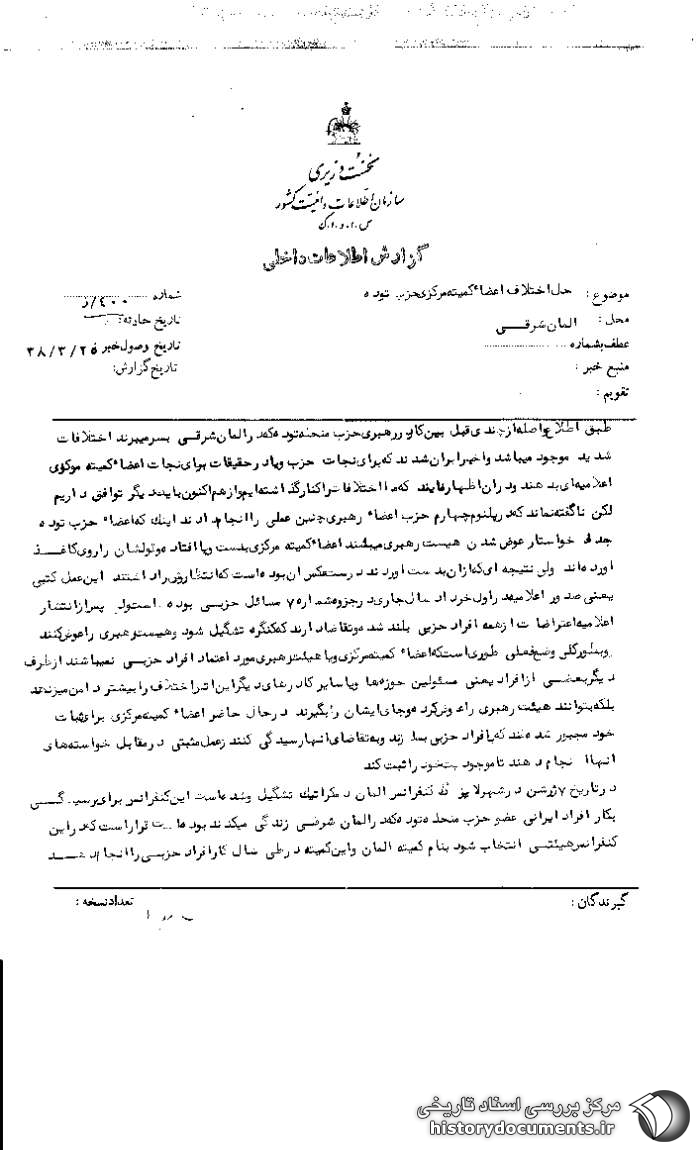 نخست وزیری
سازمان اطلاعات و امنیت کشور
س.ا.و.ا.ک
گزارش اطلاعات داخلی
موضوع : حل اختلاف اعضاء کمیته مرکزی حزب توده
شماره ۴۰۰/ر
محل : المان شرقی
تاریخ حادثه :
عطف بشماره
تاریخ وصول خبر ۳۸/۳/۲۵
منبع خبر :
تاریخ گزارش:
تقویم :
طبق اطلاع واصله از چندی قبل بین کادر رهبری حزب منحله توده که در المان شرقی بسر میبرند اختلافات
شدید موجود میباشد و اخیرا بران شدند که برای نجات حزب و یا در حقیقت برای نجات اعضاء کمیته مرکزی
اعلامیه ای بدهند و در ان اظهار نمایند که ما اختلافات را کنار گذاشته ایم و از هم اکنون با یکدیگر توافق داریم
لکن ناگفته نماند که در پلنوم چهارم حزب اعضاء رهبری چنین عملی را انجام دادند اینک که اعضاء حزب توده
جدا خواستار عوض شدن هیئت رهبری میباشند اعضاء کمیته مرکزی بدست و پا افتاده و قولشان را روی کاغذ
اورده اند ولی نتیجه ای که از ان بدست اوردند درست عکس ان بوده است که انتظارش را داشتند این عمل کتبی
یعنی صدور اعلامیه در اول خرداد سال جاری در جزوه شماره ۷ مسائل حزبی بوده است ولی پس از انتشار
اعلامیه اعتراضات از همه افراد حزبی بلند شده و تقاضا دارند که کنگره تشکیل شود و هیئت رهبری را عوض کنند
و بطور کلی وضع فعلی طوری است که اعضاء کمیته مرکزی و یا هیئت رهبری مورد اعتماد افراد حزبی نمیباشند از طرف
دیگر بعضی از افراد یعنی مسئولین حوزه ها و یا سایر کادرهای دیگر این اختلاف را بیشتر دامن میزنند
بلکه بتوانند هیئت رهبری را عوض کرده و جای ایشان را بگیرند در حال حاضر اعضاء کمیته مرکزی برای ثبات
خود مجبور شده اند که با افراد حزبی بسازند و به تقاضای انها رسیدگی کنند و عمل مثبتی در مقابل خواسته های
انها انجام دهند تا موجودیت خود را ثبت کند
در تاریخ ۷ ژوئن در شهر لایپزیک کنفرانس المان دمکراتیک تشکیل شده است این کنفرانس برای رسیدگی
بکار افراد ایرانی عضو حزب منحله توده که در المان شرقی زندگی میکنند بوده است قرار است که در این
کنفرانس هیئتی انتخاب شود بنام کمیته المان و این کمیته در طی سال کار افراد حزبی را انجام دهند
گیرندگان :
تعداد نسخه :
مرکز بررسی اسناد تاریخی
historydocuments.ir